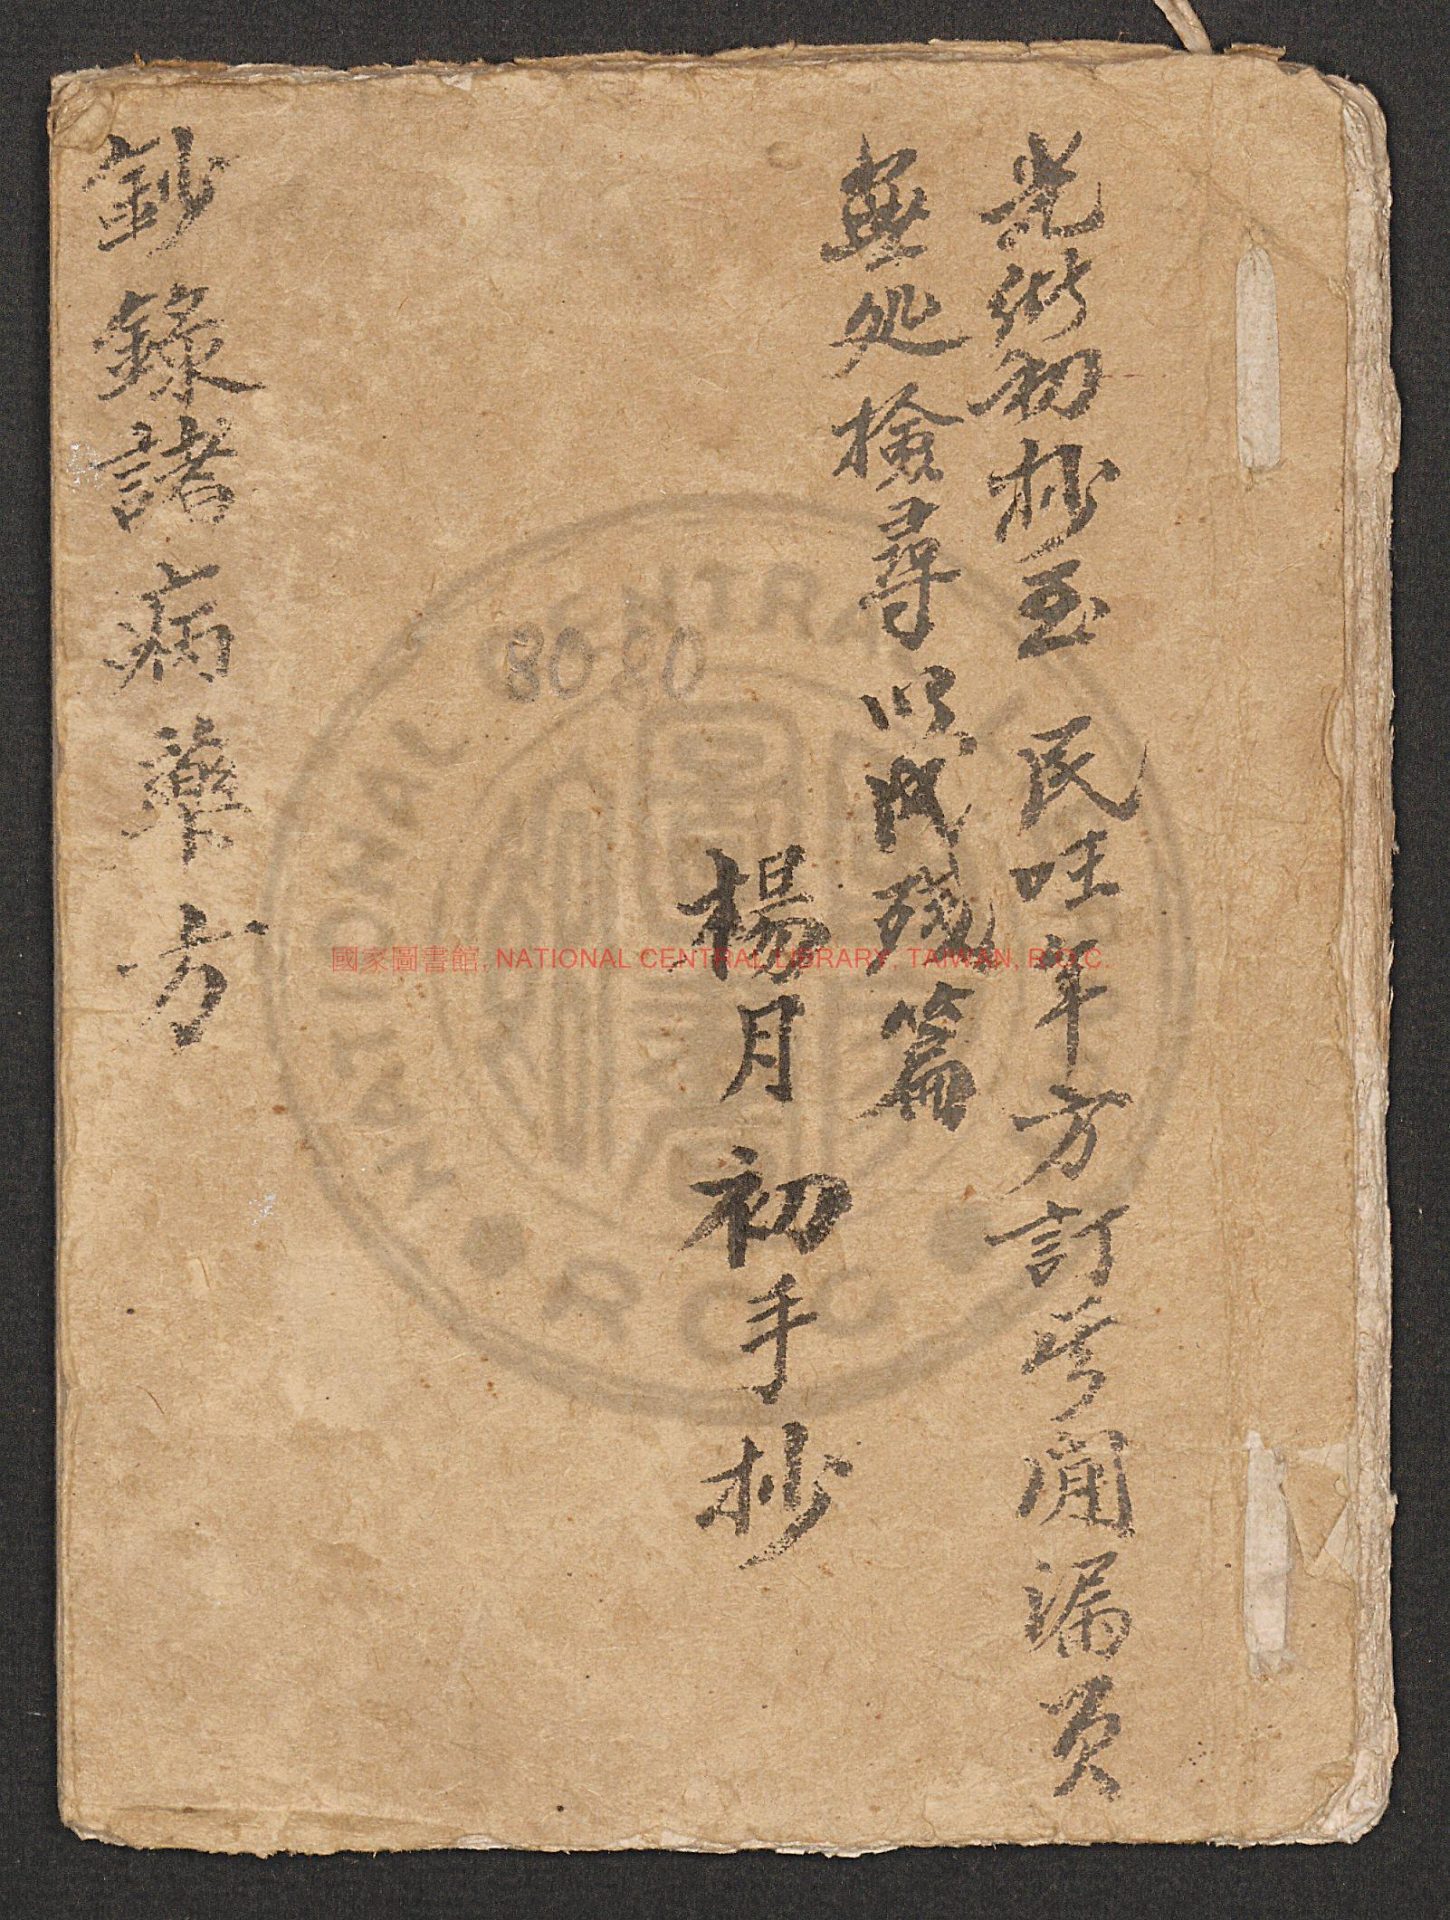 光緒初抄至民旺年方訂其間漏頁
無処檢尋以成殘篇
楊月初手抄
鈔錄諸病藥方
8080
國家圖書館, NATIONAL CENTRAL LIBRARY, TAIWAN, R.O.C.
NATIONAL CENTRAL R.O.C